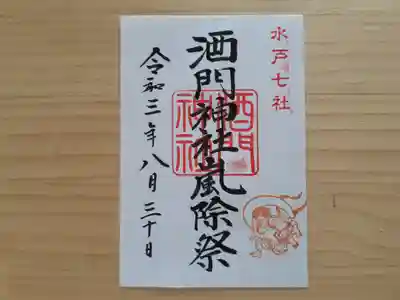 水戸七社
酒門神社嵐除祭
酒門神社
令和三年八月三十日